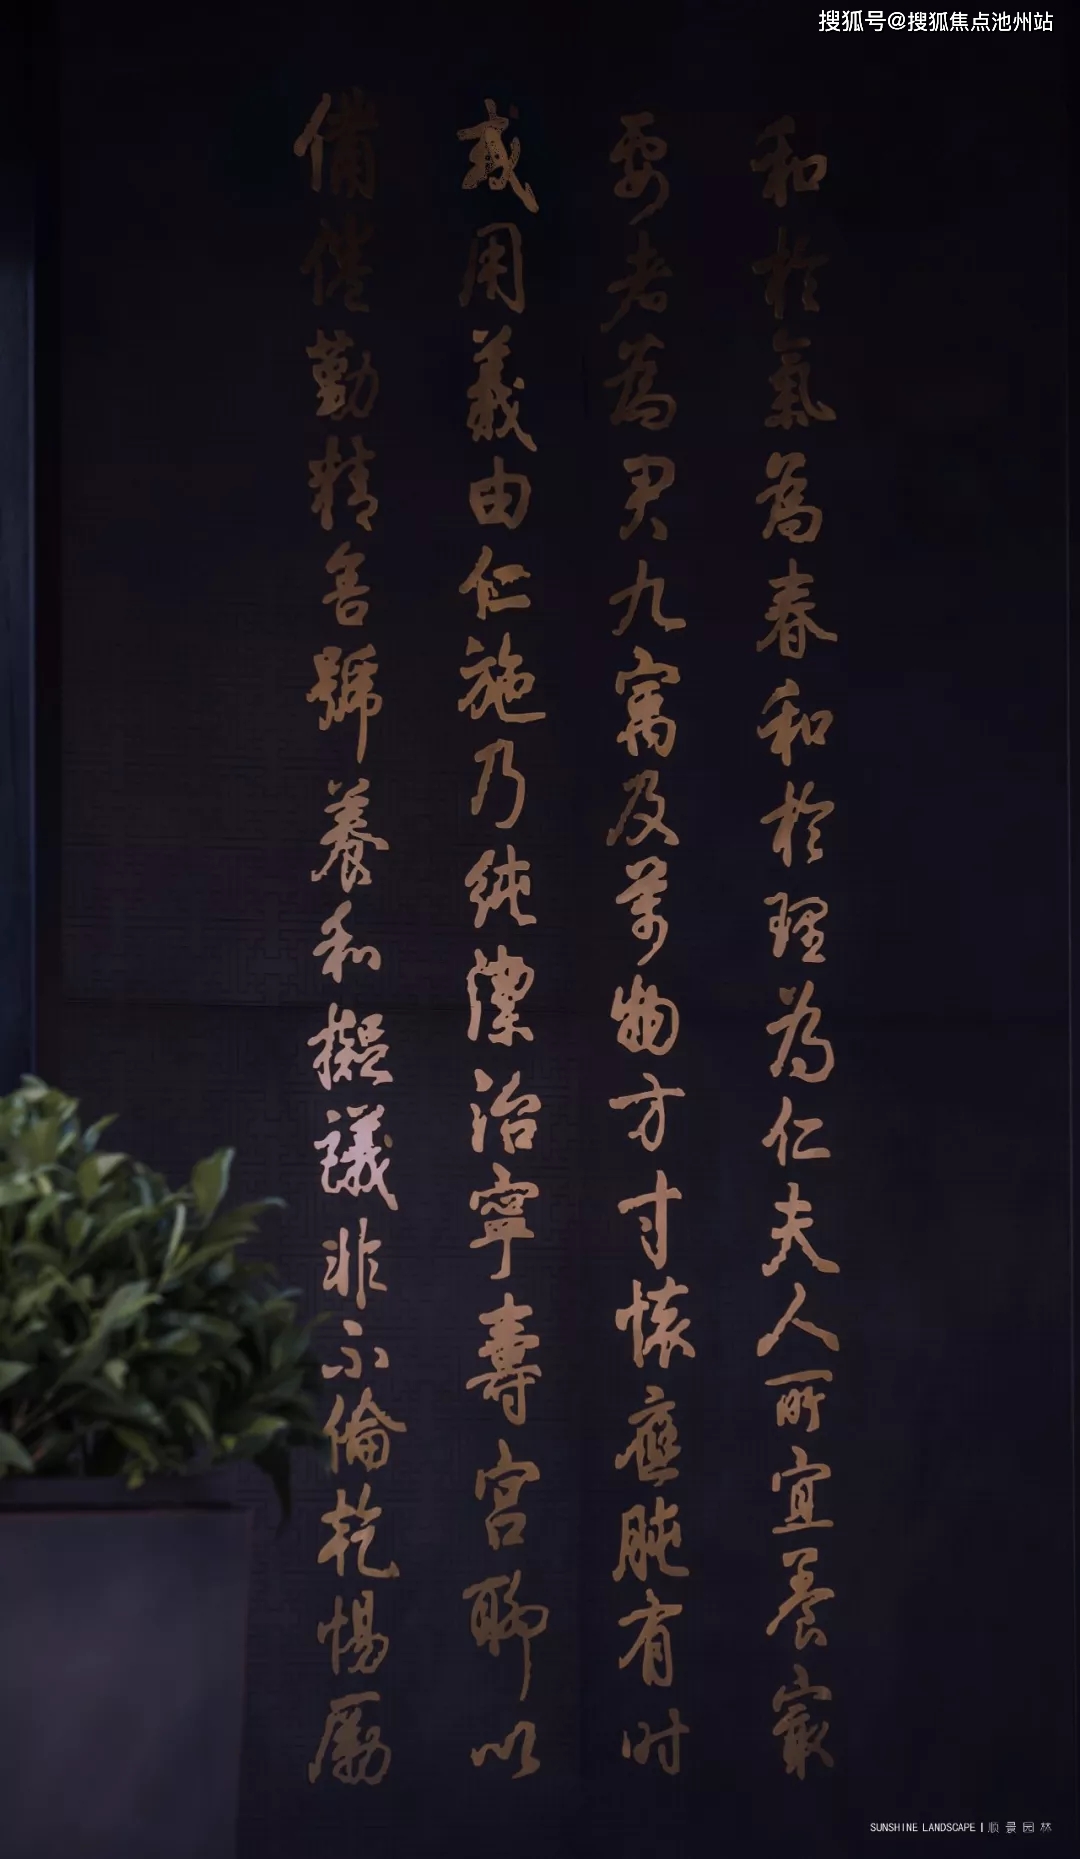 搜狐号@搜狐焦点池州站
和於氣為春和於理為仁夫人所宜養最
要者為君九寓及萬物方寸懷應肫有时
或用義由仁施乃純潔治寧壽宮聊以
備倦勤精舍號養和擬議非不倫乾惕厲
SUNSHINE LANDSCAPE | 顺景园林